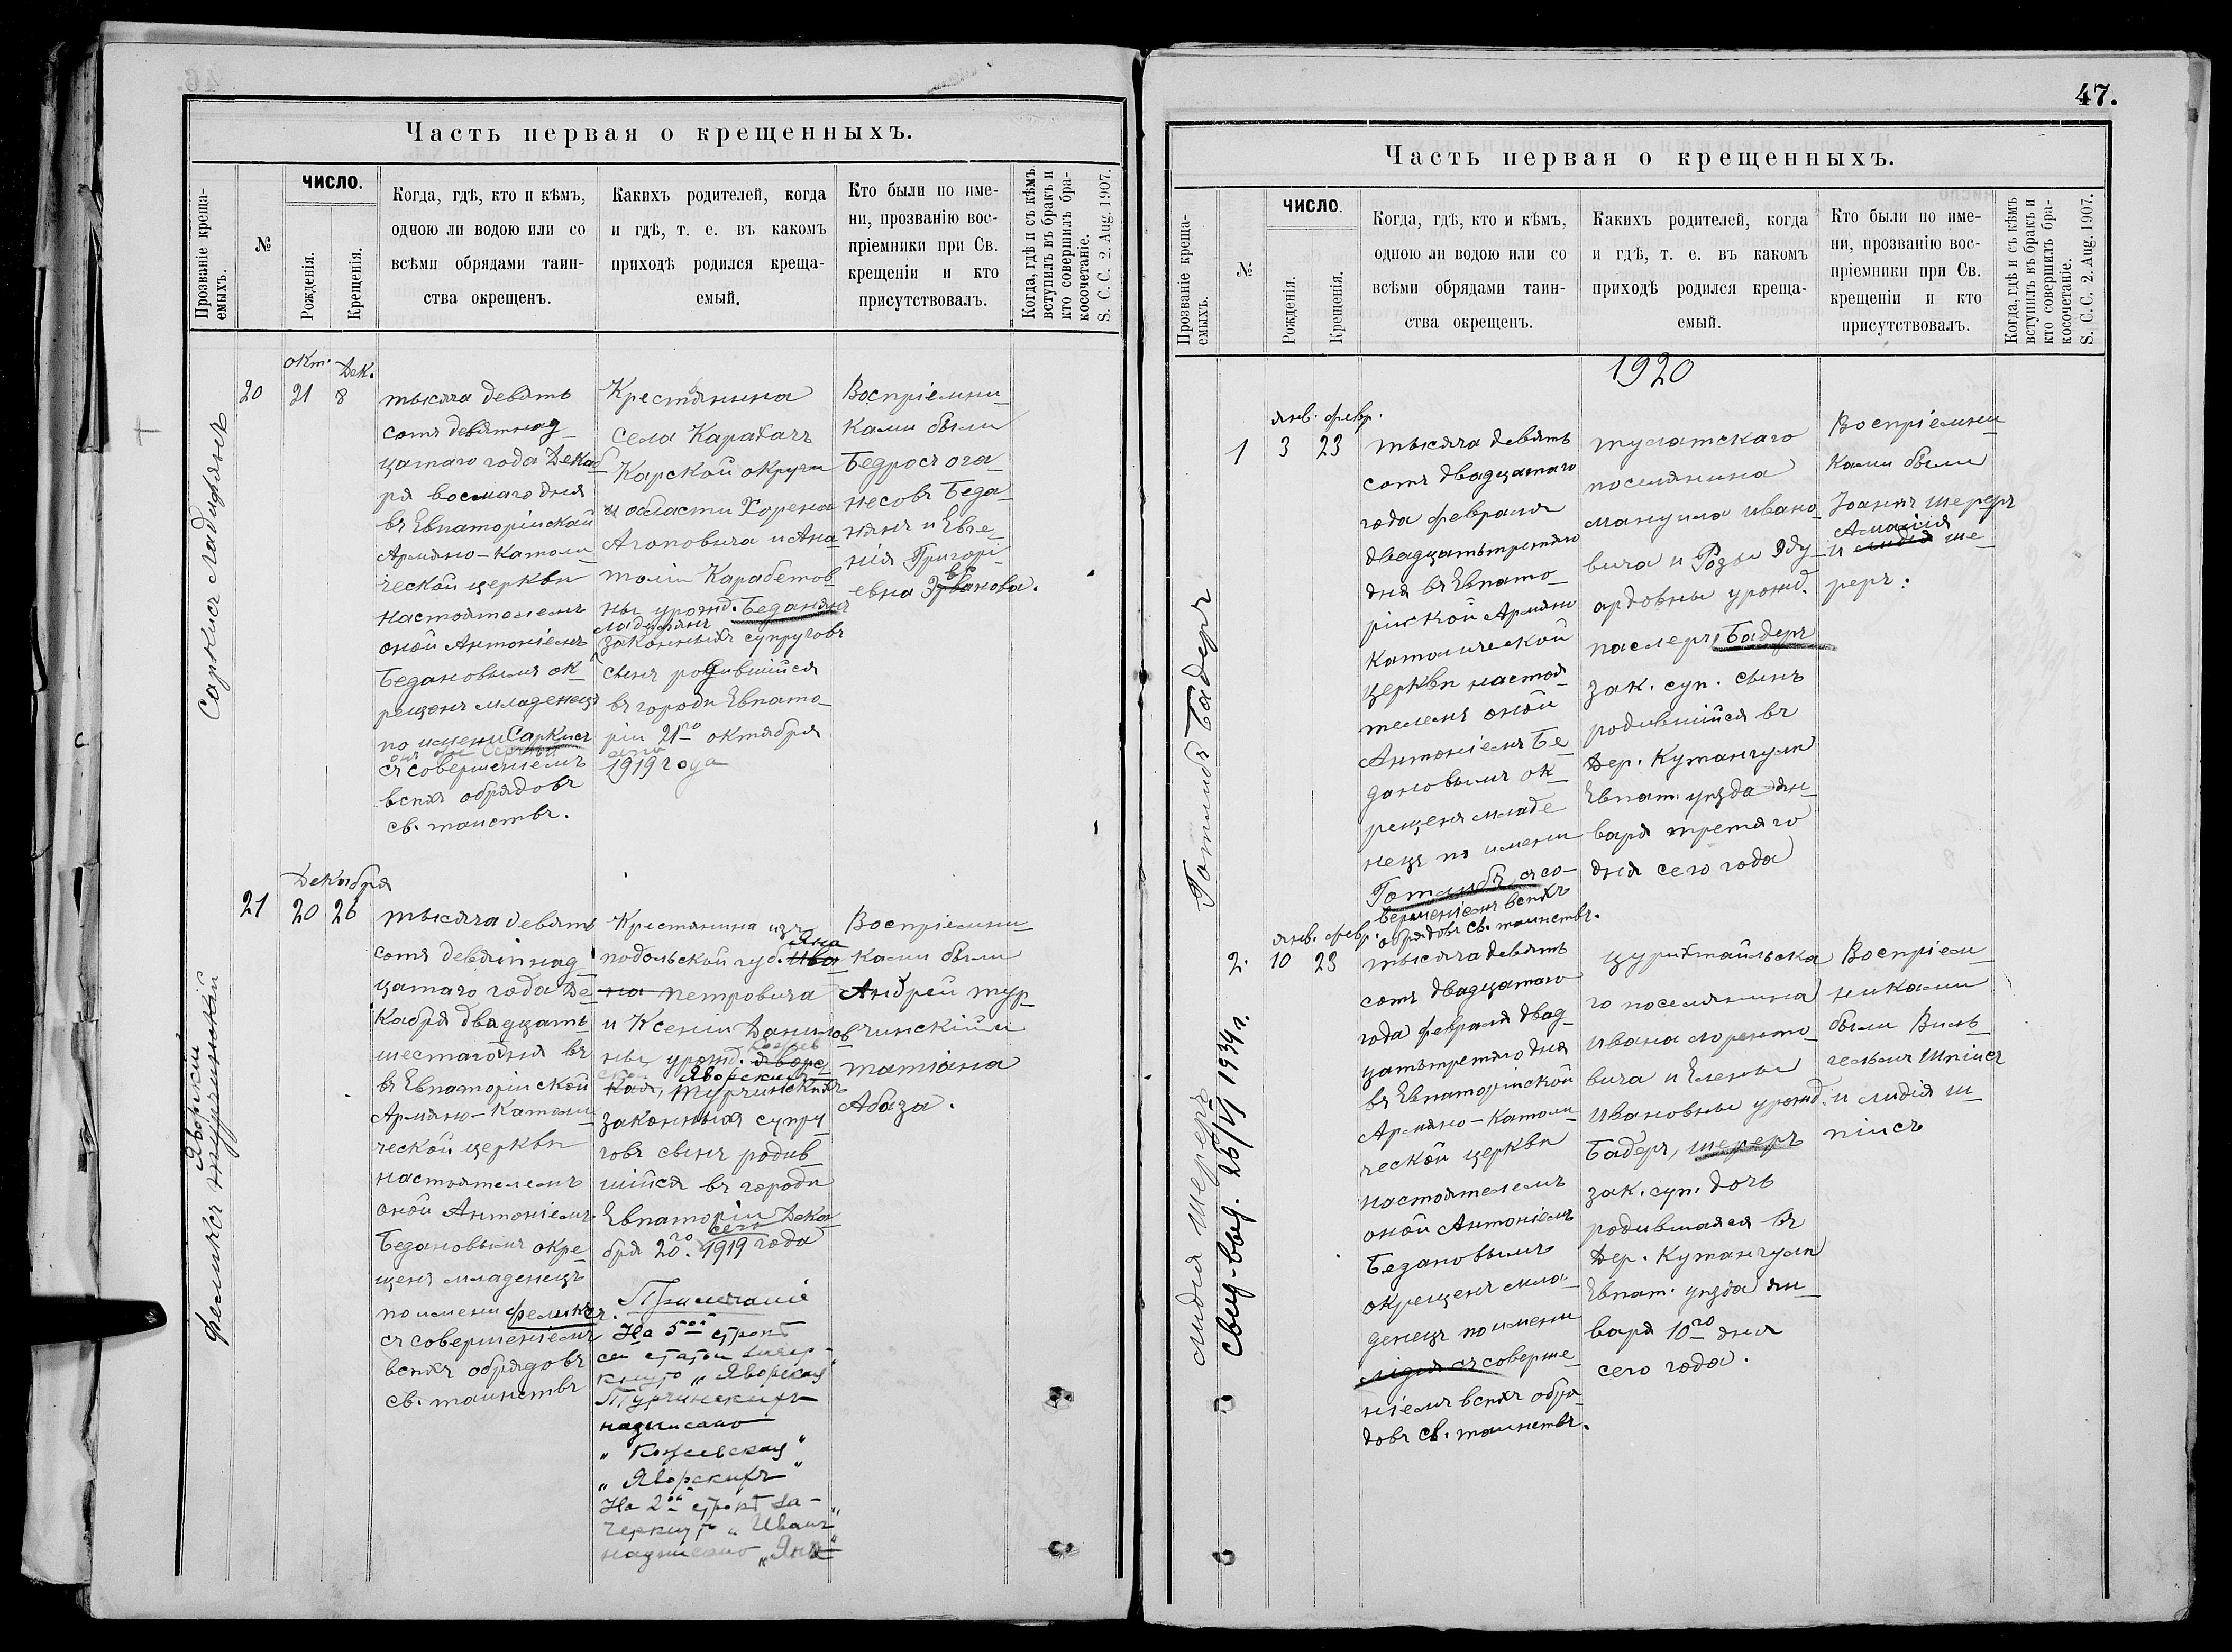 Часть первая о крещенныхъ.
Прозваніе креща-
емыхъ.
№
ЧИСЛО.
Рожденія.
Крещенія.
Когда, гдѣ, кто и кѣмъ,
одною ли водою или со
всѣми обрядами таин-
ства окрещенъ.
Какихъ родителей, когда
и гдѣ, т. е. въ какомъ
приходѣ родился креща-
емый.
Кто были по име-
ни, прозванію вос-
пріемники при Св.
крещеніи и кто
присутствовалъ.
Когда, гдѣ и съ кѣмъ
вступилъ въ бракъ и
кто совершилъ бра-
косочетаніе.
S. C. C. 2. Aug. 1907.
Саркисъ Ладифянъ
20
окт. Дек.
21 8
тысяча девять
сотъ девятнад
цатаго года Декаб
ря восмаго дня
въ Евпаторійской
Армяно-Католи
ческой церкви
настоятелемъ
оной Антоніемъ
Бедановымъ ок
рещенъ младенецъ
по имени Саркисъ
онъ же Сергѣй
съ совершеніемъ
всѣхъ обрядовъ
св. таинствъ.
Крестянина
села Карахачъ
Карской округи
и области Хорена
Агоповича и Ана
толіи Карабетов
ны урожд. Беданянъ
Ладифянъ
законныхъ супруговъ
сынъ родившійся
въ городѣ Евпато
ріи 21го октября
1919 года
Воспріемни
ками были
Бедросъ ога
несовъ Беда
нянъ и Евге
нія Григорі
евна
Феликсъ Яворскій Турчинскій
21
Декабря
20 26
тысяча девять
сотъ девятнад
цатаго года Де
кабря двадцать
шестаго дня въ
въ Евпаторійской
Армяно-Католи
ческой церкви
настоятелемъ
оной Антоніемъ
Бедановымъ окре
щенъ младенецъ
по имени Феликсъ
съ совершеніемъ
всѣхъ обрядовъ
св. таинствъ
Крестянина изъ
Яна
подольской губ. Ива
на Петровича
и Ксеніи Данилов
ны урожд. Яворс
Яворскихъ
кая, Турчинскихъ
законныхъ супру
говъ сынъ родив
шійся въ городѣ
Евпаторіи Дека
сего
бря 20го 1919 года
Примечаніе
На 5ой строкѣ
сей статьи зачер-
кнуто „Яворская
Турчинскихъ
надписано
„Кожевская“
„Яворскихъ“
На 2ой строкѣ за-
черкнуто „Иванъ“
надписано „Яна“
Воспріемни
ками были
Андрей тур
чинскій и
татіана
Абаза.
47.
Часть первая о крещенныхъ.
Прозваніе креща-
емыхъ.
№
ЧИСЛО.
Рожденія.
Крещенія.
Когда, гдѣ, кто и кѣмъ,
одною ли водою или со
всѣми обрядами таин-
ства окрещенъ.
Какихъ родителей, когда
и гдѣ, т. е. въ какомъ
приходѣ родился креща-
емый.
Кто были по име-
ни, прозванію вос-
пріемники при Св.
крещеніи и кто
присутствовалъ.
Когда, гдѣ и съ кѣмъ
вступилъ въ бракъ и
кто совершилъ бра-
косочетаніе.
S. C. C. 2. Aug. 1907.
1920
Готлибъ Бадеръ
1
янв. февр.
3 23
тысяча девять
сотъ двадцатаго
года февраля
двадцать третяго
дня въ Евпато
рійской Армяно
католической
церкви настоя
телемъ оной
Антоніемъ Бе
дановымъ ок
рещенъ младе
нецъ по имени
Готлибъ съ со-
вершеніемъ всѣхъ
обрядовъ св. таинствъ.
тулатскаго
поселянина
мануила ивано
вича и Розы Эду
ардовны урожд.
паслеръ, Бадеръ
зак. суп. сынъ
родившійся въ
Дер. Кутангулѣ
Евпат. уѣзда ян
варя третяго
дня сего года
Воспріемни
ками были
Іоаннъ шереръ
Амалія
и лидія ше
реръ.
лидія шереръ
свид-выд. 25/VI 1934 г.
2.
янв. февр.
10 23
тысяча девять
сотъ двадцатаго
года февраля двад
цать третяго дня
въ Евпаторійской
Армяно-Католи
ческой церкви
настоятелемъ
оной Антоніемъ
Бедановымъ
окрещенъ мла
денецъ по имени
лидія съ соверше
ніемъ всѣхъ обря
довъ св. таинствъ.
цурихтальска
го поселянина
ивана лоренто
вича и Елены
ивановны урожд.
Бадеръ, шереръ
зак. суп. дочь
родившаяся въ
Дер. Кутангулѣ
Евпат. уѣзда ян
варя 10го дня
сего года.
Воспріем
никами
были Виль
гельмъ шписъ
и лидія ш
писъ